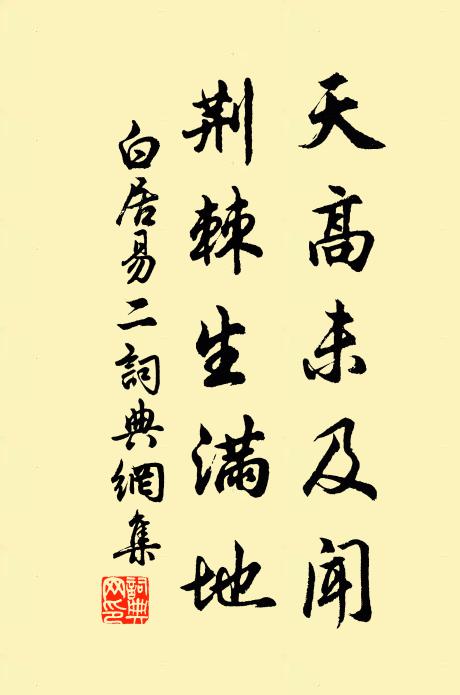 天高未及闻
荆棘生满地
白居易二詞典網集
詞典網印